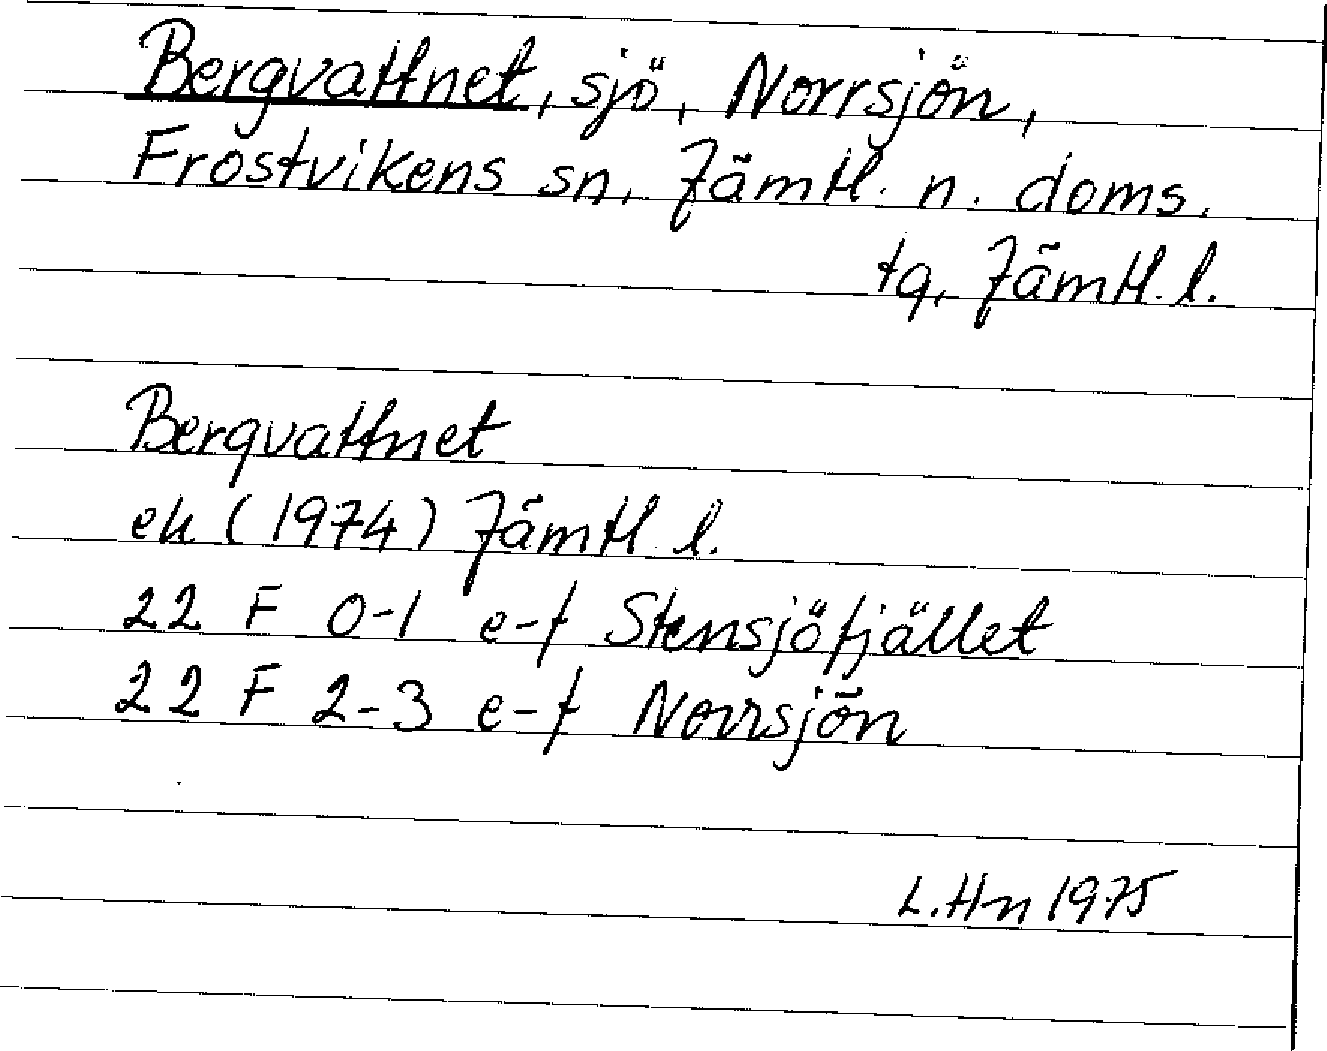 Bergvattnet, sjö, Norrsjön,
Frostvikens sn, Jämtl. n. doms.
tg, Jämtl. l.
Bergvattnet
ek (1974) Jämtl l.
22 F 0-1 e-f Stensjöfjället
22 F 2-3 e-f Norrsjön
L. Hn 1975